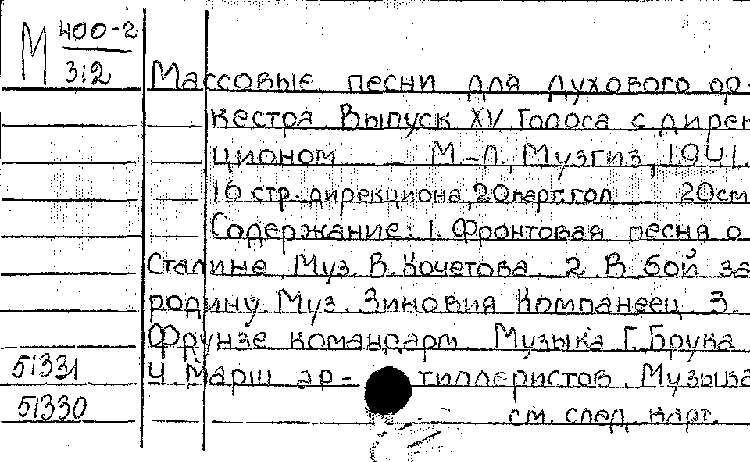 М 400-2
3,2
Массовые песни для духового ор-
кестра Выпуск XV Голоса с дирек
ционом – М-Л, Музгиз, 1941.
16 стр. дирекциона, 20 парт. гол 20см
Содержание: 1. Фронтовая песня о
Сталине Муз. В. Кочетова 2 В бой за
родину Муз. Зиновия Компанеец 3.
Фрунзе командарм Музыка Г. Брука
51331 4. Марш ар- тиллеристов. Музыка
51330 см. след карт.